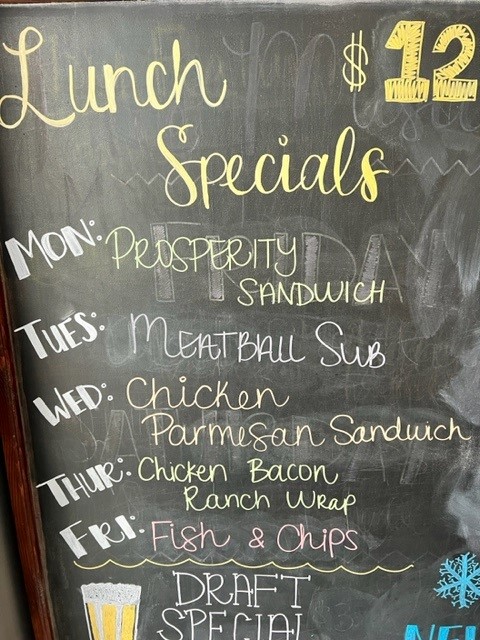 Lunch $12
Specials
MON: PROSPERITY
SANDWICH
TUES: MEATBALL SUB
WED: Chicken
Parmesan Sandwich
THUR: Chicken Bacon
Ranch Wrap
FRI: Fish & Chips
DRAFT
SPECIAL